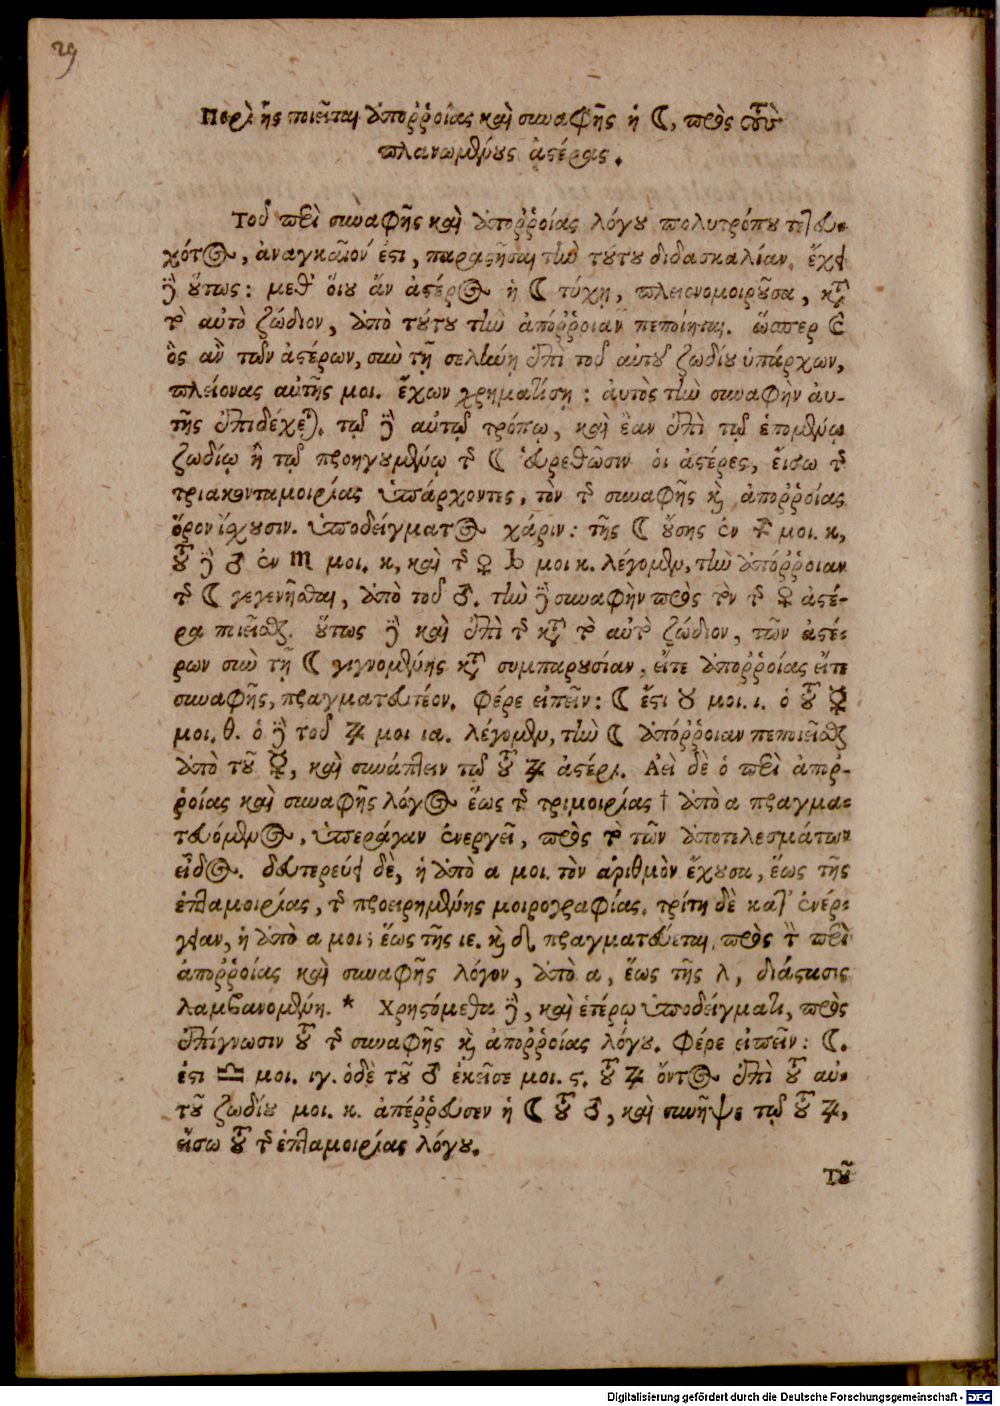 29
Περὶ ἧς ποιεῖται ἀποῤῥοίας καὶ συναφῆς ἡ ☾, πρὸς τοὺς
πλανωμένους ἀστέρας.
Τοῦ περὶ συναφῆς καὶ ἀποῤῥοίας λόγου πολυτρόπου τετευ-
χότος, ἀναγκαῖόν ἐστι, παραστῆσαι τὴν τούτου διδασκαλίαν. ἔχει
δὲ οὕτως: μεθ' οὗ ἂν ἀστέρος ἡ ☾ τύχῃ, πλειονομοιροῦσα, κατὰ
τὸ αὐτὸ ζώδιον, ἀπὸ τούτου τὴν ἀπόῤῥοιαν πεποίηται. ὥσπερ
ὃς ἂν τῶν ἀστέρων, σὺν τῇ σελήνῃ ἐπὶ τοῦ αὐτοῦ ζωδίου ὑπάρχων,
πλείονας αὐτῆς μοι. ἔχων χρηματίσῃ: αὐτὸς τὴν συναφὴν αὐ-
τῆς ἐπιδέχεται. τῷ δὲ αὐτῷ τρόπῳ, καὶ ἐὰν ἐπὶ τῷ ἑπομένῳ
ζωδίῳ ἢ τῷ προηγουμένῳ τῆς ☾ εὑρεθῶσιν οἱ ἀστέρες, εἴσω τῆς
τριακονταμοιρίας ὑπάρχοντες, τὸν τῆς συναφῆς καὶ ἀποῤῥοίας
ὅρον ἴσχουσιν. ὑποδείγματος χάριν: τῆς ☾ οὔσης ἐν ♐ μοι. κ,
τοῦ δὲ ♂ ἐν ♏ μοι. κ, καὶ τῆς ♀ ♑ μοι κ. λέγομεν, τὴν ἀπόῤῥοιαν
τῆς ☾ γεγενῆσθαι, ἀπὸ τοῦ ♂. τὴν δὲ συναφὴν πρὸς τὸν τῆς ♀ ἀστέ-
ρα ποιεῖσθαι. οὕτως δὲ καὶ ἐπὶ τῆς κατὰ τὸ αὐτὸ ζώδιον, τῶν ἀστέ-
ρων σὺν τῇ ☾ γιγνομένης κατὰ συμπαρουσίαν, εἴτε ἀποῤῥοίας εἴτε
συναφῆς, πραγματευτέον. φέρε εἰπεῖν: ☾ ἔστι ♉ μοι. ι. ὁ τοῦ ☿
μοι. θ. ὁ δὲ τοῦ ♃ μοι ια. λέγομεν, τὴν ☾ ἀπόῤῥοιαν πεποιεῖσθαι
ἀπὸ τοῦ ☿, καὶ συνάπτειν τῷ τοῦ ♃ ἀστέρι. Ἀεὶ δὲ ὁ περὶ ἀποῤ-
ῥοίας καὶ συναφῆς λόγος ἕως τῆς τριμοιρίας † ἀπὸ α πραγμα-
τευόμενος, ὑπεράγαν ἐνεργεῖ, πρὸς τὸ τῶν ἀποτελεσμάτων
εἶδος. δευτερεύει δὲ, ἡ ἀπὸ α μοι. τὸν ἀριθμὸν ἔχουσα, ἕως τῆς
ἑπταμοιρίας, τῆς προειρημένης μοιρογραφίας. τρίτη δὲ κατ' ἐνέρ-
γειαν, ἡ ἀπὸ α μοι; ἕως τῆς ιε. καὶ δὴ πραγματεύεται, πρὸς τὸν περὶ
ἀποῤῥοίας καὶ συναφῆς λόγον, ἀπὸ α, ἕως τῆς λ, διάστασις
λαμβανομένη. * Χρησόμεθα δὲ, καὶ ἑτέρῳ ὑποδείγματι, πρὸς
ἐπίγνωσιν τοῦ τῆς συναφῆς καὶ ἀποῤῥοίας λόγου. φέρε εἰπεῖν: ☾.
ἐστι ♎ μοι. ιγ. ὁ δὲ τοῦ ♂ ἐκεῖσε μοι. ϛ. τοῦ ♃ ὄντος ἐπὶ τοῦ αὐ-
τοῦ ζωδίου μοι. κ. ἀπέῤῥευσεν ἡ ☾ τοῦ ♂, καὶ συνῆψε τῷ τοῦ ♃,
εἴσω τοῦ τῆς ἑπταμοιρίας λόγου.
τοῦ
Digitalisierung gefördert durch die Deutsche Forschungsgemeinschaft - DFG